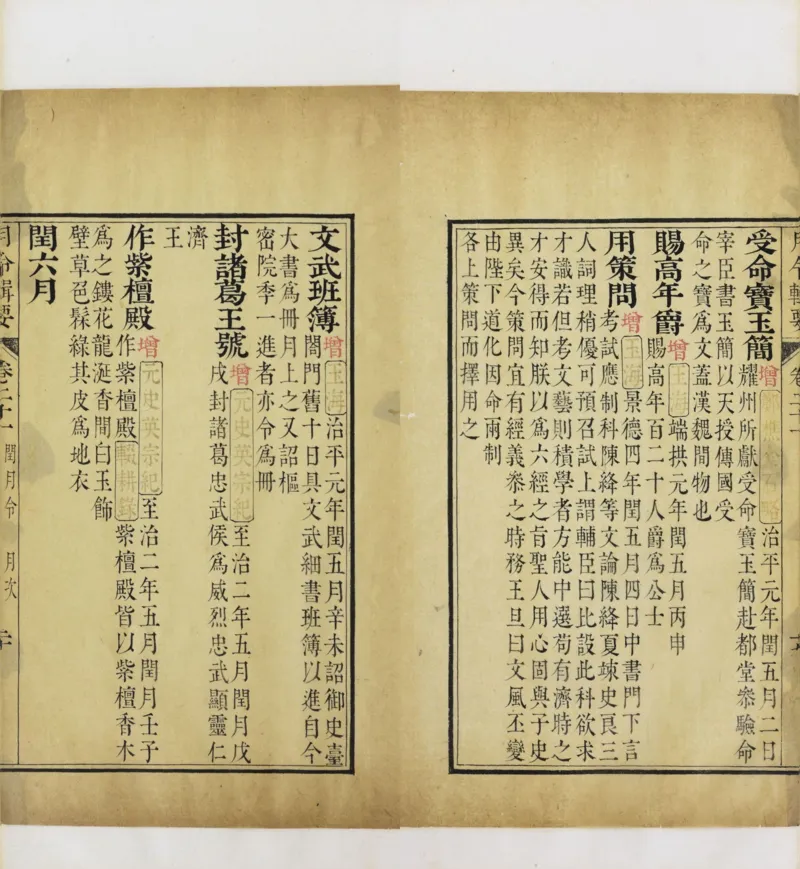 受命寶玉簡 增 治平元年閏五月二日
耀州所獻受命寶玉簡赴都堂叅驗命
宰臣書玉簡以天授傳國受
命之寶爲文蓋漢魏間物也
賜高年爵 增 玉海 端拱元年閏五月丙申
賜高年百二十人爵爲公士
用策問 增 玉海 景德四年閏五月四日中書門下言
考試應制科陳絳等文論陳絳夏竦史良三
人詞理稍優可預召試上謂輔臣曰比設此科欲求
才識若但考文藝則積學者方能中選苟有濟時之
才安得而知朕以爲六經之旨聖人用心固與子史
異矣今策問宜有經義叅之時務王旦曰文風丕變
由陛下道化因命兩制
各上策問而擇用之
文武班簿 增 玉海 治平元年閏五月辛未詔御史臺
閤門舊十日具文武細書班簿以進自今
大書爲冊月上之又詔樞
密院季一進者亦令爲冊
封諸葛王號 增 元史英宗紀 至治二年五月閏月戊
戌封諸葛忠武侯爲威烈忠武顯靈仁
濟
王
作紫檀殿 增 元史英宗紀 至治二年五月閏月壬子
作紫檀殿 紫檀殿皆以紫檀香木
爲之鏤花龍涎香間白玉飾
壁草色髹綠其皮爲地衣
閏六月
月令輯要 卷二十一 閏月令 月次